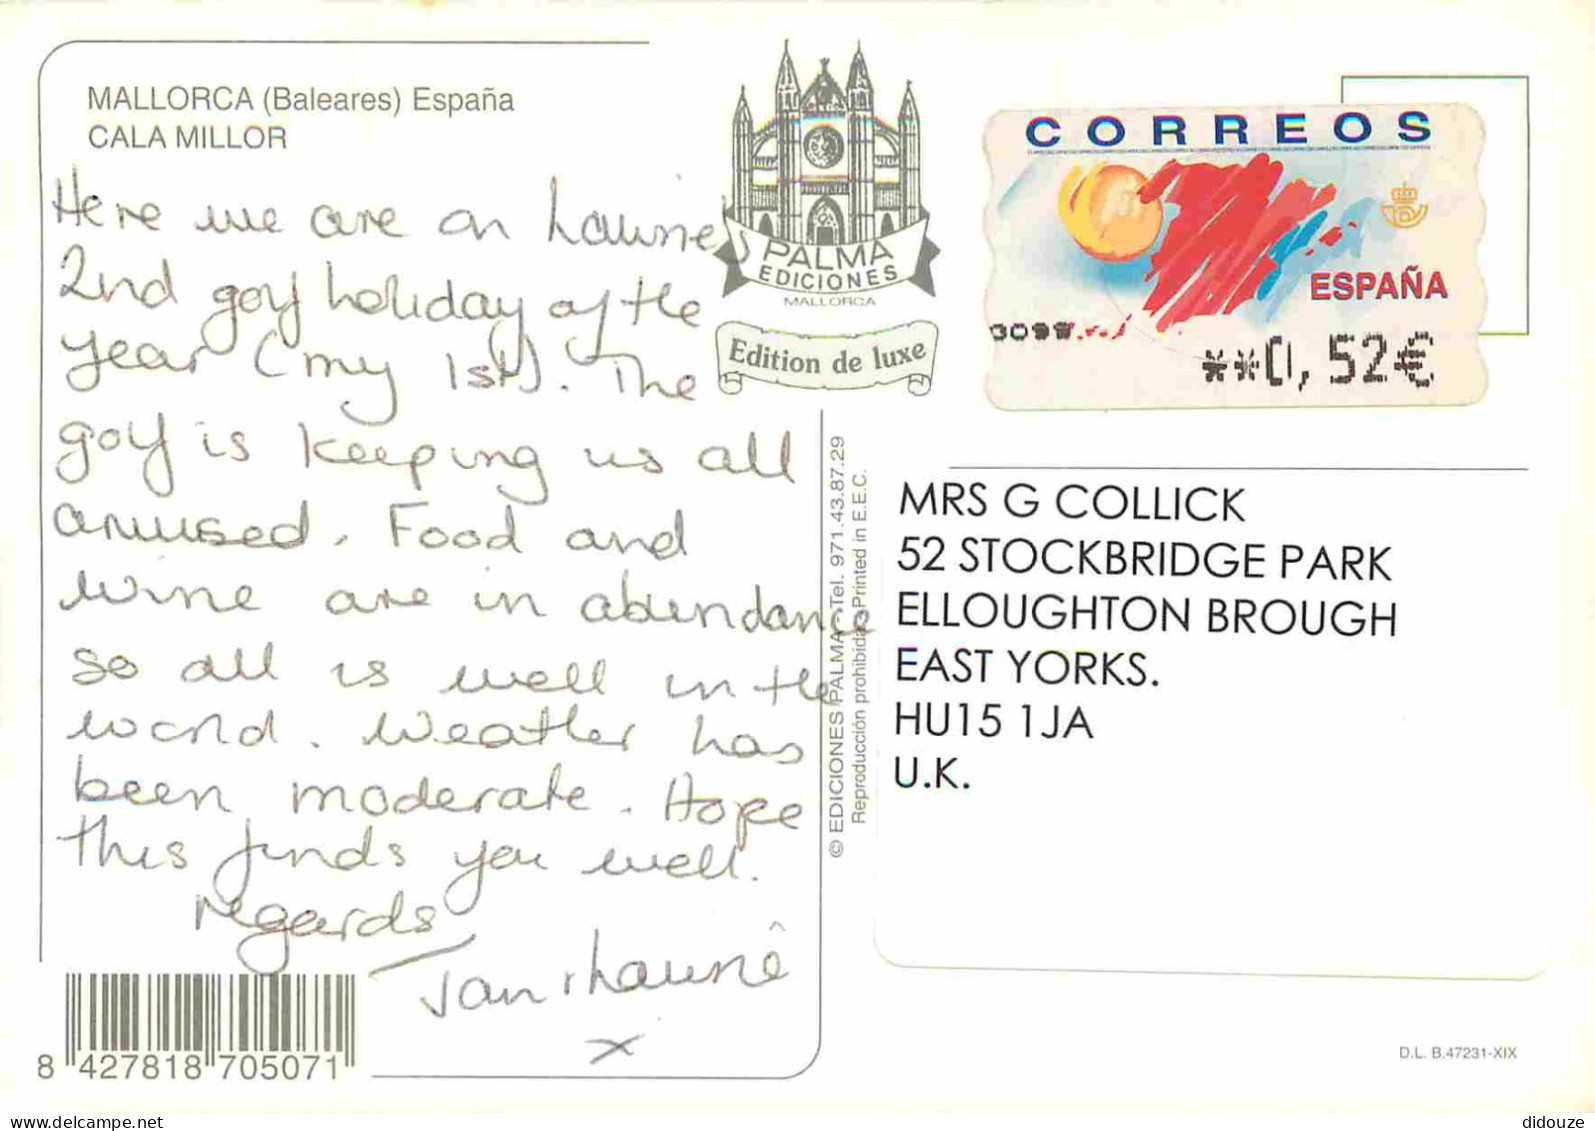 MALLORCA (Baleares) España
CALA MILLOR
Here we are on Lawrie's
2nd golf holiday of the
year (my 1st). The
golf is keeping us all
amused. Food and
wine are in abundance
so all is well in the
world. Weather has
been moderate. Hope
this finds you well.
regards
Jan
x
8 427818 705071
PALMA
EDICIONES
MALLORCA
Edition de luxe
© EDICIONES PALMA - Tel. 971.43.87.29
Reproducción prohibida. Printed in E.E.C.
CORREOS
ESPAÑA
**0,52€
MRS G COLLICK
52 STOCKBRIDGE PARK
ELLOUGHTON BROUGH
EAST YORKS.
HU15 1JA
U.K.
D.L. B.47231-XIX
delcampe.net
didouze